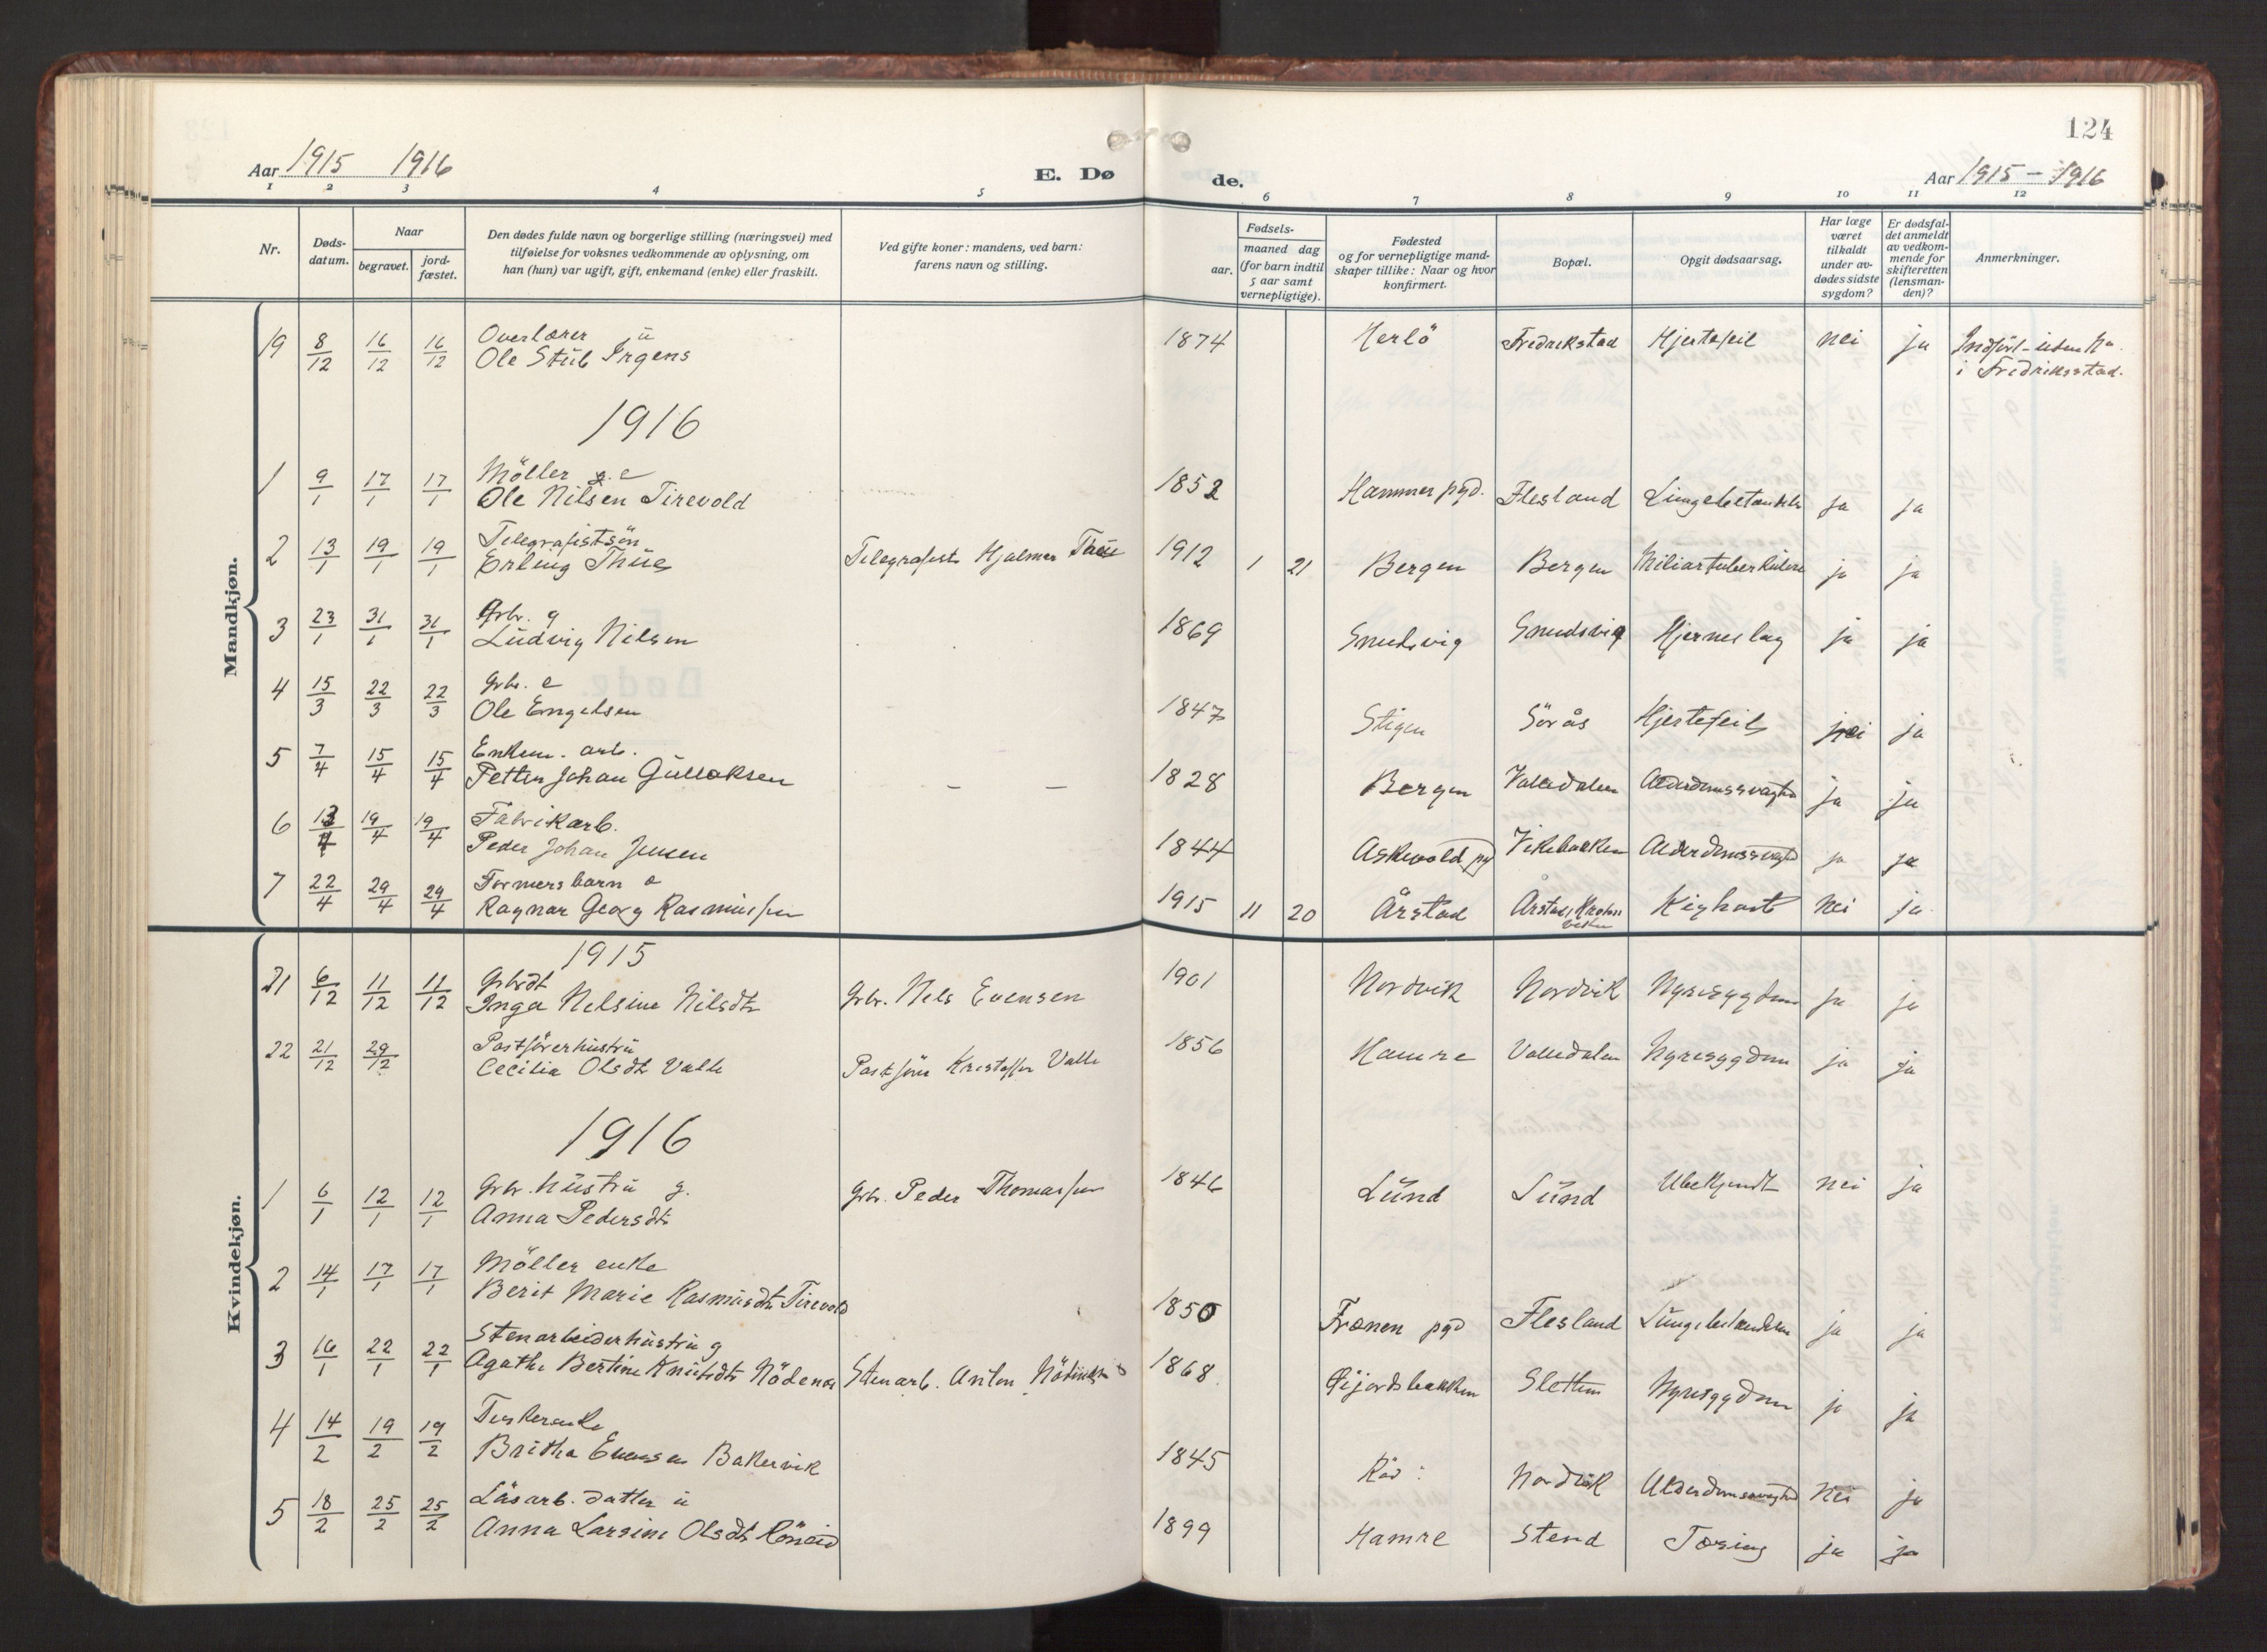 124
Aar 1915 1916
E. Dø
de.
Aar 1915 – 1916
1 2 3 4 5 6 7 8 9 10 11 12
Nr.
Døds-
datum.
Naar
begravet.
jord-
fæstet.
Den dødes fulde navn og borgerlige stilling (næringsvei) med
tilføielse for voksnes vedkommende av oplysning, om
han (hun) var ugift, gift, enkemand (enke) eller fraskilt.
Ved gifte koner: mandens, ved barn:
farens navn og stilling.
Fødsels-
aar.
maaned dag
(for barn indtil
5 aar samt
vernepligtige).
Fødested
og for vernepligtige mand-
skaper tillike: Naar og hvor
konfirmert.
Bopæl.
Opgit dødsaarsag.
Har læge
været
tilkaldt
under av-
dødes sidste
sygdom?
Er dødsfal-
det anmeldt
av vedkom-
mende for
skifteretten
(lensman-
den)?
Anmerkninger.
Mandkjøn.
19 8/12 16/12 16/12 Overlærer ü
Ole Stüb Irgens 1874 Herlö Fredrikstad Hjertefeil nei ja
i Fredriksstad.
1916
1 9/1 17/1 17/1 Möller e
Ole Nilsen Tirevold 1852 Hammer pgd. Flesland ja ja
2 13/1 19/1 19/1 Telegrafistsön
Erling Thüe Telegrafist Hjalmar Thüe 1912 1 21 Bergen Bergen ja ja
3 23/1 31/1 31/1 Grbr. g
Ludvig Nilsen 1869 Smudsvig Smudsvig Hjerneslag ja ja
4 15/3 22/3 22/3 Grbr. e
Ole Engelsen 1847 Stigen Sörås Hjertefeil nei ja
5 7/4 15/4 15/4 Enkem. arb.
Petter Johan Gülloksen – – 1828 Bergen Valledalen Alderdomssvaghed ja ja
6 13/4 19/4 19/4 Fabrikarb.
Peder Johan Jensen 1844 Askevold pgd Alderdomssvaghed ja ja
7 22/4 29/4 29/4 Formers barn
Ragnar Georg Rasmüssen 1915 11 20 Årstad Årstad, Kighoste nei ja
Kvindekjøn.
1915
21 6/12 11/12 11/12 Grbrdt
Inga Nelsine Nilsdtr Grbr. Nels Evensen 1901 Nordvik Nordvik Nyresygdom ja ja
22 21/12 29/12 Postförerhüstrü
Cecilia Olsdtr Valle Postförer Kristoffer Valle 1856 Hamre Valledalen Nyresygdom ja ja
1916
1 6/1 12/1 12/1 Grbr. hüstrü g.
Anna Pedersdtr Grbr. Peder Thomassen 1846 Lünd Lünd Ubekjendt nei ja
2 14/1 17/1 17/1 Möller enke
Berit Marie Rasmüsdtr Tirevold 1850 Frænen pgd Flesland Lüngebetændelse ja ja
3 16/1 22/1 22/1 Stenarbeiderhüstrü g
Agathe Bertine Knütsdtr Nödenæs Stenarb. Anton 1868 Sletten Nyresygdom ja ja
4 14/2 19/2 19/2
Britha Evensen Bakervik 1845 Nordvik Alderdomssvaghed nei ja
5 18/2 25/2 25/2 Läsarb. datter ü
Anna Larsine Olsdtr 1899 Hamre Stend Tæring ja ja